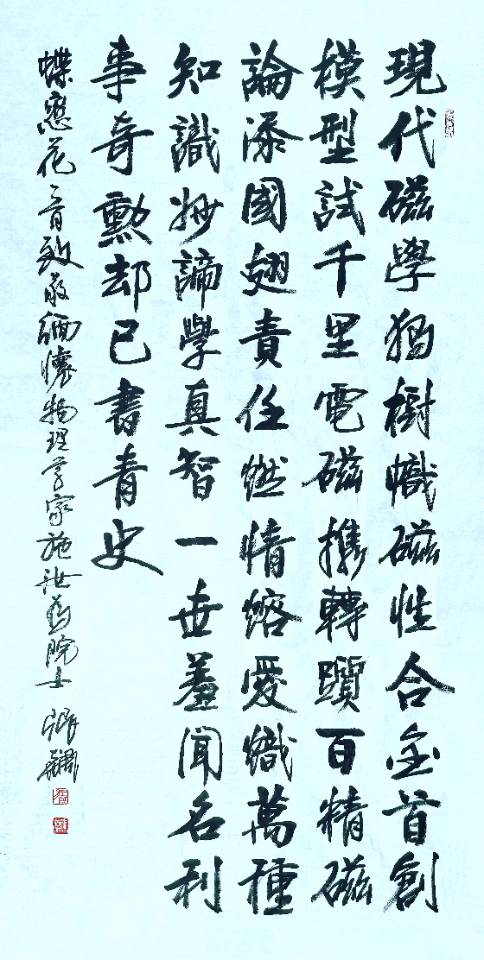 現代磁學獨樹幟磁性合金首創
模型試千里電磁攜轉躓百精磁
論添國翅責任燃情鎔愛織萬種
知識妙諦學真智一世羞聞名利
事奇勳却已書青史
蝶戀花一首致敬緬懷物理学家施汝為院士